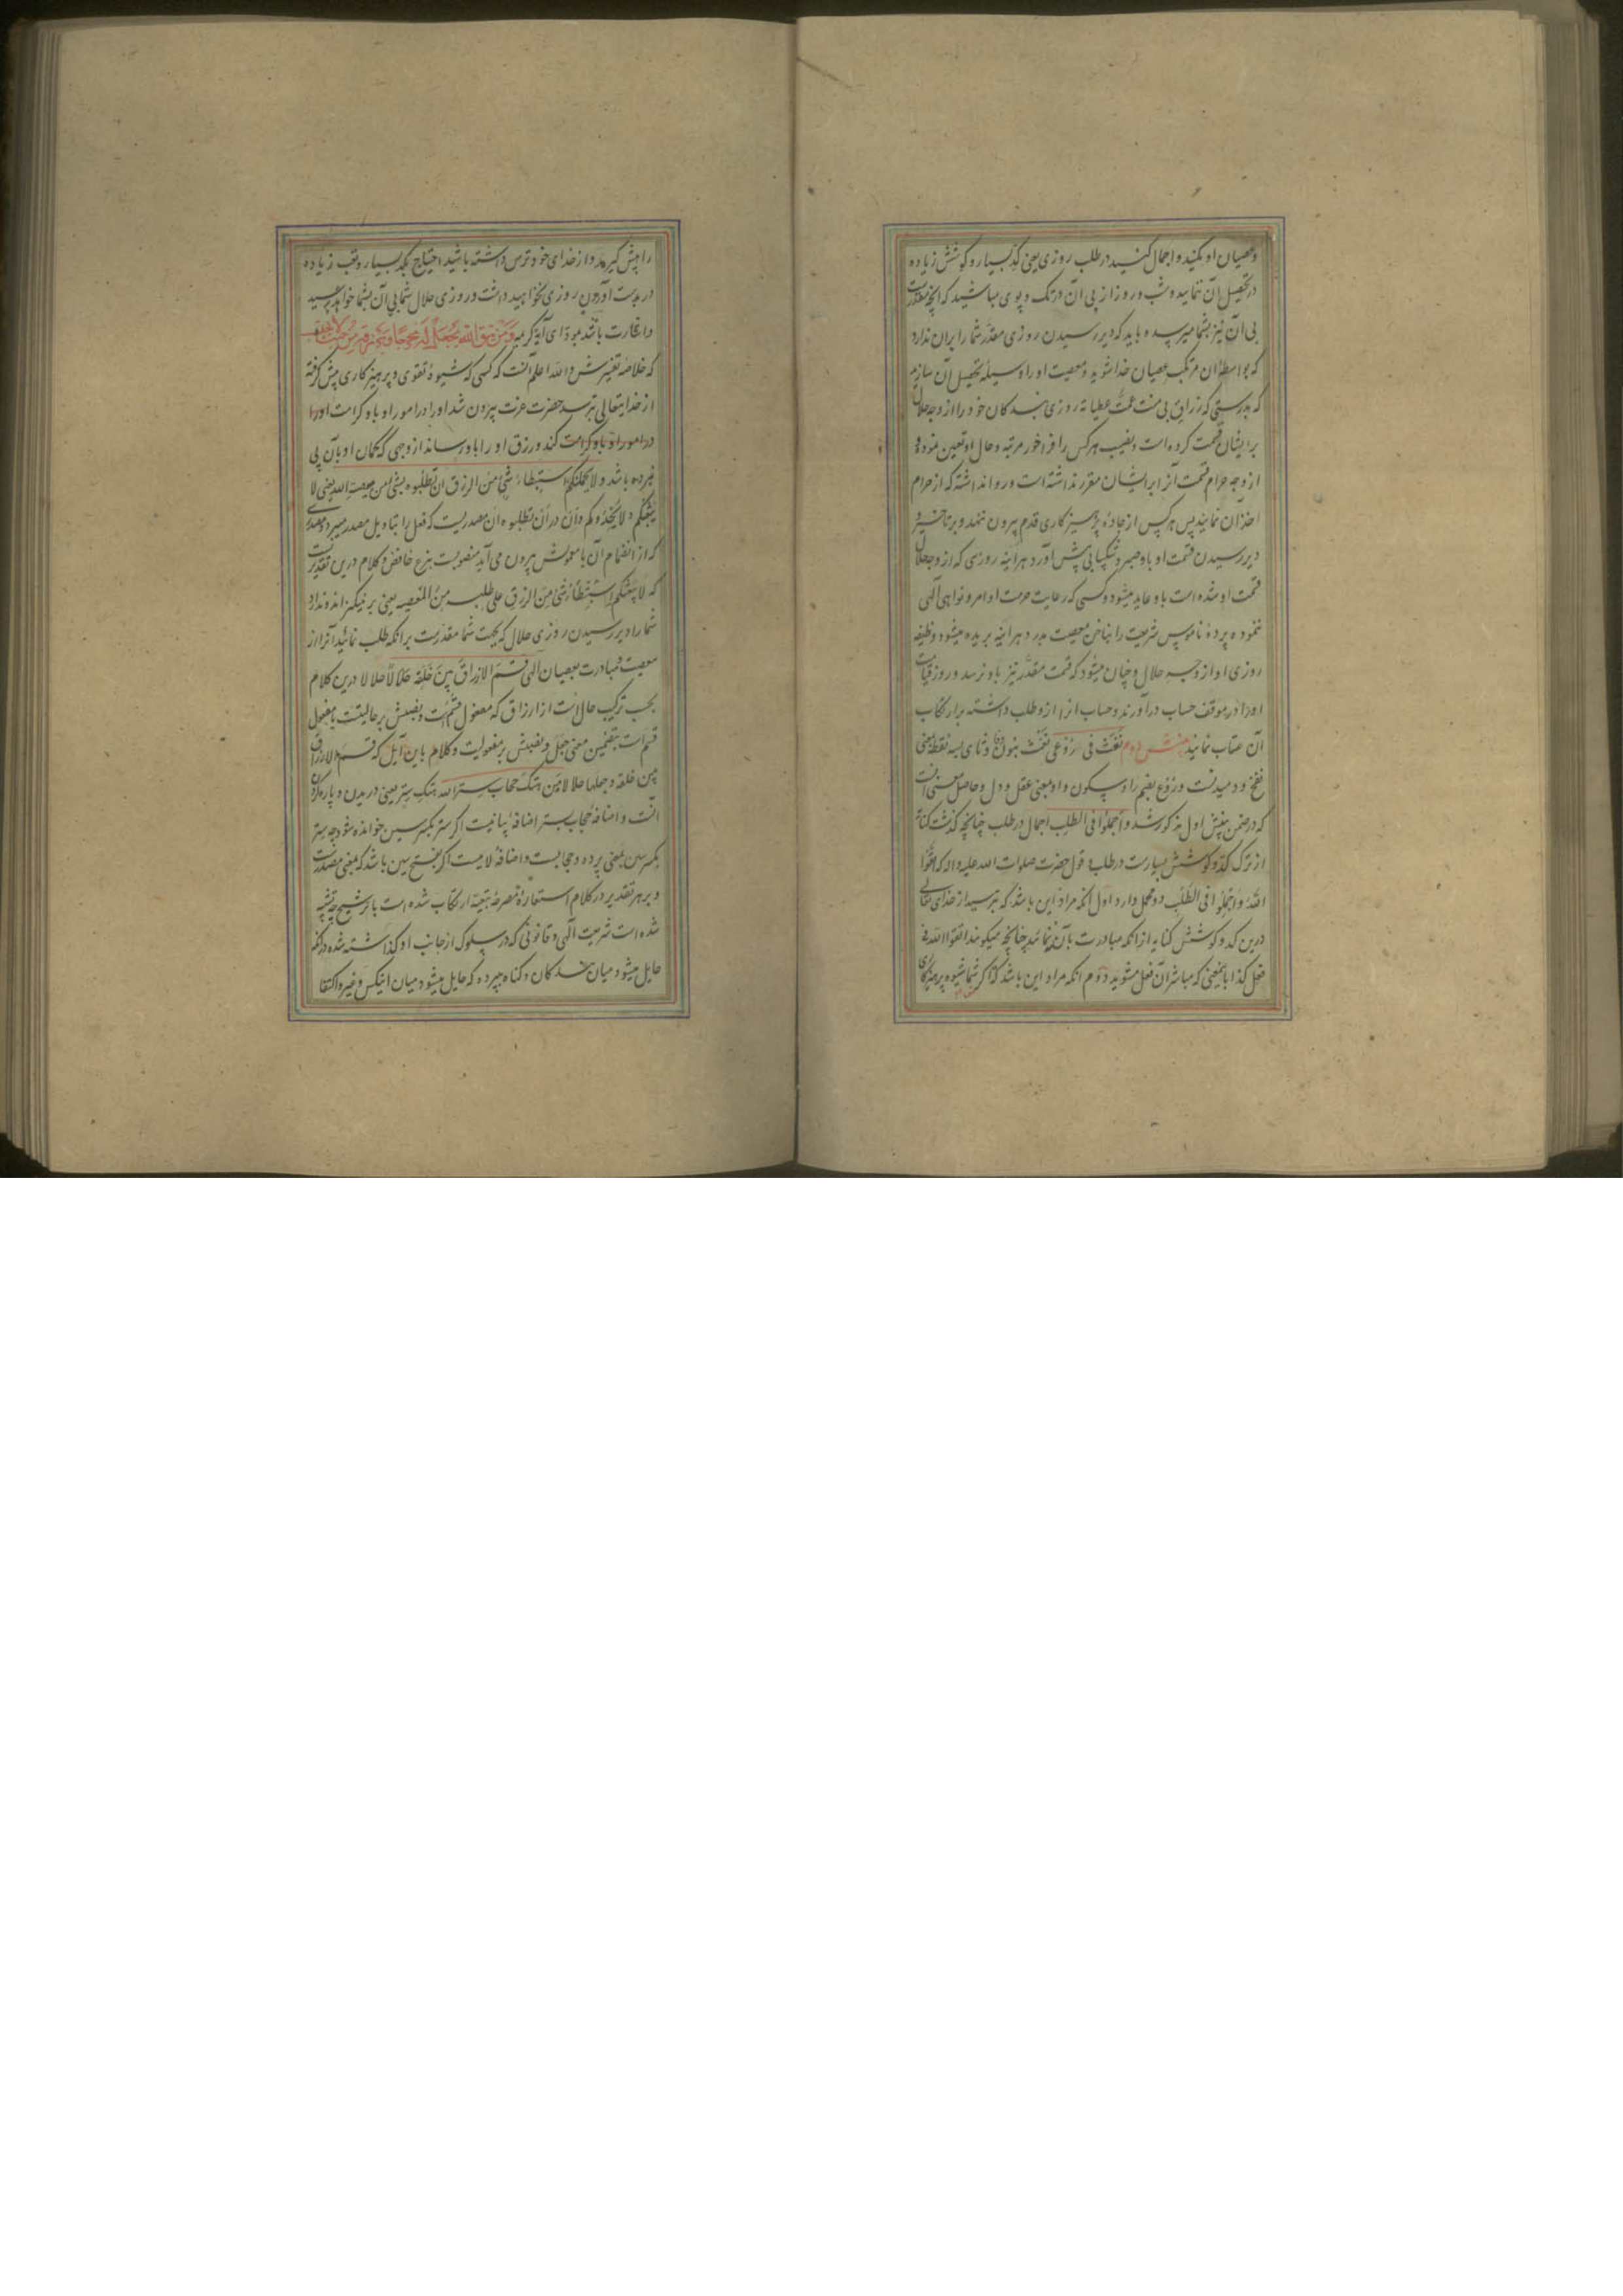 وعصیان او مکنید و اجمال کنید در طلب روزی یعنی کد بسیار و کوشش زیاده
در تحصیل آن ننمایید و شب و روز از پی آن در تک و پوی مباشید که آنچه مقدرست
بی آن نیز بشما میرسد و باید که دیر رسیدن روزی مقدر شما را بران ندارد
که بواسطهٔ آن مرتکب عصیان خدا شوید و معصیت او را وسیلهٔ تحصیل آن سازید
که بدرستی که رزاق بی منت عمت عطایاه روزی بندکان خود را از وجه حلال
برایشان قسمت کرده است و نصیب هر کس را فراخور مرتبه و حال او تعین نموده و
از وجه حرام قسمت آنرا برایشان مقرر نداشته است و روا نداشته که از حرام
اخذ آن نمایند پس هر کس از جادهٔ پرهیزکاری قدم بیرون ننهد و بر تأخیر و
دیر رسیدن قسمت او باو صبر و شکیبایی پیش آورد هر آینه روزی که از وجه حلال
قسمت او شده است باو عاید میشود و کسی که رعایت حرمت اوامر و نواهی الهی
ننموده پردهٔ ناموس شریعت را بناخن معصیت بدرد هر آینه بریده میشود وظیفه
روزی او از وجه حلال و چنان میشود که قسمت مقدر نیز باو نرسد و روز قیامت
او را در موقف حساب درآورند و حساب آنرا ازو طلب داشته بر ارتکاب
آن عتاب نمایند بینش دوم نفث فی روعی نفث بنون و فا و ثای بسه نقطه بمعنی
نفخ و دمیدنست و روع بضم را و سکون واو بمعنی عقل و دل و حاصل معنی آنست
که در ضمن بینش اول مذکور شد و اجملوا فی الطلب اجمال در طلب چنانچه کذشت کنایه
از ترک کد و کوشش بسیارست در طلب و قول حضرت صلوات الله علیه و اله که اتقوا
الله و اجملوا فی الطلب دو محمل دارد اول آنکه مراد این باشد که بترسید از خدای تعالی
درین کد و کوشش کنایه از آنکه مبادرت بآن ننمائید چنانچه میکویند اتق الله فی
فعل کذا بامعنی که مباشر آن فعل مشوید دوم آنکه مراد این باشد که اکر شما شیوه پرهیزکاری
را پیش کیرید و از خدای خود ترس داشته باشید احتیاج بکد بسیار و تعب زیاده
در بدست آوردن روزی نخواهید داشت و روزی حلال شما بی آن بشما خواهد رسید
و اشارت باشد بمودای آیهٔ کریمه و من یتق الله یجعل له مخرجا و یرزقه من حیث لا یحتسب
که خلاصهٔ تفسیرش و الله اعلم آنست که کسی که شیوهٔ تقوی و پرهیزکاری پیش کرفته
از خدایتعالی بترسد حضرت عزت بیرون شد او را در امور او باو کرامت اورا
در امور او باو کرامت کند و رزق او را باو رساند از وجهی که کمان او بآن پی
نبرده باشد و لا یحملنکم استبطاء شئ من الرزق ان تطلبوه بشئ من معصیة الله یعنی لا
یبعثکم و لا یحذوکم و ان در ان تطلبوه ان مصدریست که فعل را بتاویل مصدر میبرد و مصدری
که از انضمام آن با مدخولش بیرون می آید منصوبست بنزع خافض و کلام درین تقدیرست
که لا یبعثکم استبطاء شئ من الرزق علی طلبه من المعصیه یعنی برنیکیزاند و ندارد
شما را دیر رسیدن روزی حلال که بجهت شما مقدرست بر آنکه طلب نمائید آنرا از
معصیت و مبادرت بعصیان الهی قسم الارزاق بین خلقه حلالا حلالا درین کلام
بحسب ترکیب حالست از ارزاق که مفعول قسم است و نصبش بر حالیتست یا مفعول
قسم است بتضمین معنی جعل و نصبش بر مفعولیت و کلام باین آیل که قسم الارزاق
بین خلقه و جعلها حلالا من هتک حجاب ستر الله هتک ستر یعنی دریدن و پاره کردن
آنست و اضافهٔ حجاب بستر اضافهٔ بیانیست اکر ستر بکسر سین خوانده شود چه ستر
بکسر سین بمعنی پرده و حجابست و اضافهٔ لامیست اکر بفتح سین باشد که بمعنی مصدرست
و بر هر تقدیر در کلام استعارهٔ مصرحهٔ تبعیه ارتکاب شده است با ترشیح چه تشبیه
شده است شریعت الهی و قانونی که در سلوک از جانب او کذاشته شده در آنکه
حایل میشود میان بندکان و کناه بپرده که حایل میشود میان اینکس و غیر و اکتفا